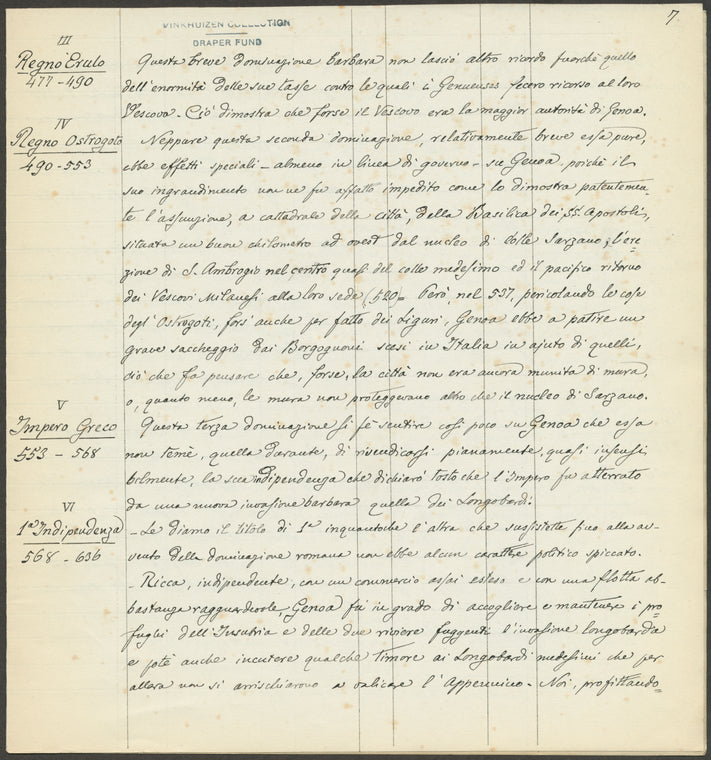 VINKHUIZEN COLLECTION
DRAPER FUND
7.
III
Regno Erulo
477-490
Questa breve dominazione barbara non lasciò altro ricordo fuorchè quello
dell'enormità delle sue tasse contro le quali i Genuenses fecero ricorso al loro
Vescovo. Ciò dimostra che forse il Vescovo era la maggior autorità di Genoa.
IV
Regno Ostrogoto
490-553
Neppure questa seconda dominazione, relativamente breve essa pure,
ebbe effetti speciali - almeno in linea di governo - su Genoa, poichè il
suo ingrandimento non ne fu affatto impedito come lo dimostra patentemen=
te l'assunzione, a cattedrale della città, della Basilica dei SS. Apostoli,
situata un buon chilometro ad ovest dal nucleo di Colle Sarzano; l'ere=
zione di S. Ambrogio nel centro quasi del colle medesimo ed il pacifico ritorno
dei Vescovi Milanesi alla loro sede (520= Però, nel 537, pericolando le cose
degl'Ostrogoti, fors'anche per fatto dei Liguri, Genoa ebbe a patire un
grave saccheggio dai Borgognoni scesi in Italia in ajuto di quelli,
ciò che fa pensare che, forse, la città non era ancora munita di mura,
o, quanto meno, le mura non proteggevano altro che il nucleo di Sarzano.
V
Impero Greco
553-568
Questa terza dominazione si fè sentire così poco su Genoa che essa
non temè, quella durante, di rivendicarsi pianamente, quasi insensi
bilmente, la sua indipendenza che dichiarò tosto che l'Impero fu atterrato
da una nuova invasione barbara quella dei Longobardi.
VI
1ª Indipendenza
568-636
- Le diamo il titolo di 1ª inquantochè l'altra che sussistette fino alla av=
vento della dominazione romana non ebbe alcun carattere politico spiccato.
- Ricca, indipendente, con un commercio assai esteso e con una flotta ab=
bastanza ragguardevole, Genoa fu in grado di accogliere e mantenere i pro=
fughi dell'Insubria e delle due riviere fuggenti l'invasione longobarda
e potè anche incutere qualche timore ai Longobardi medesimi che per
allora non si arrischiarono a valicare l'Appennino - Noi, profittando=